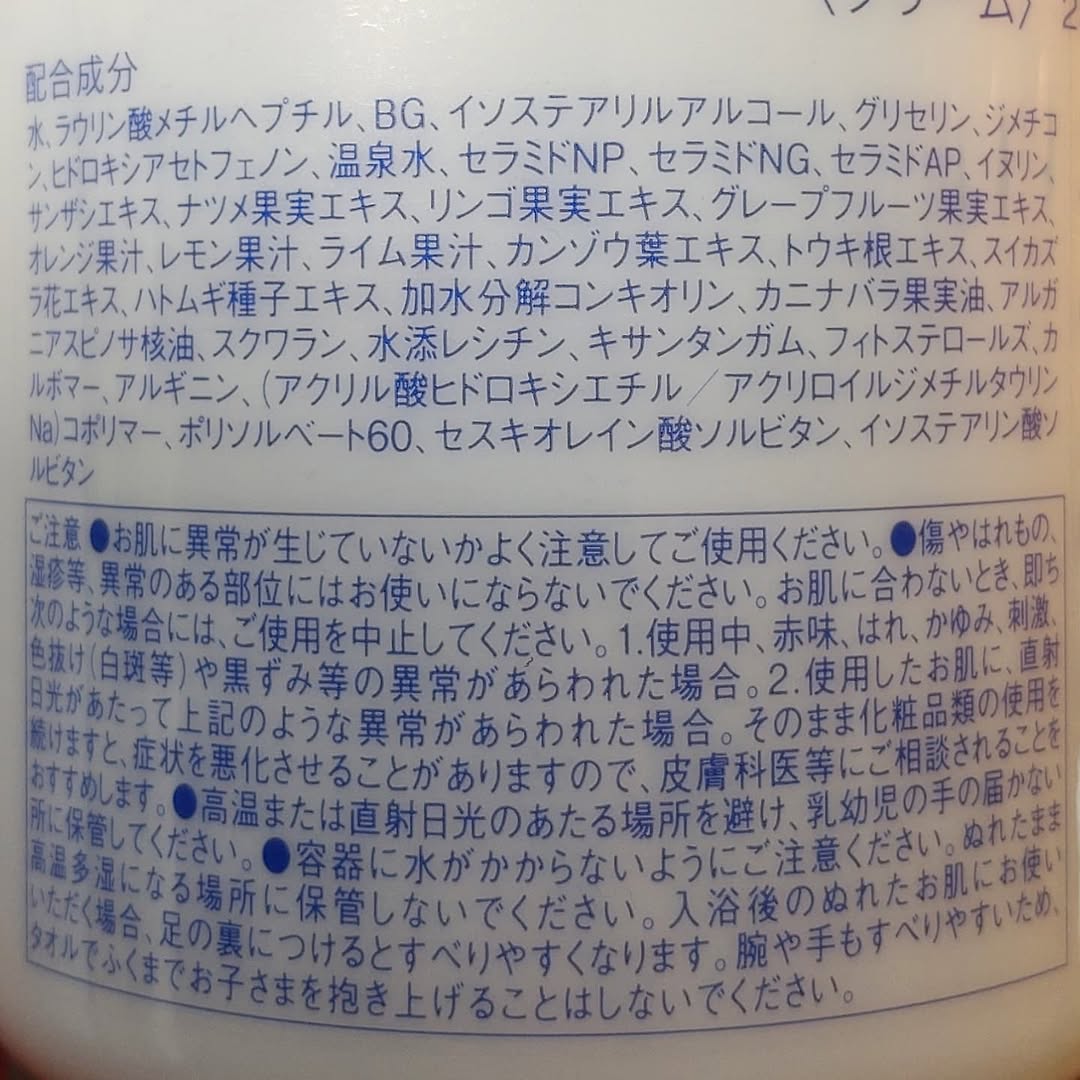 〈クリーム〉2
配合成分
水、ラウリン酸メチルヘプチル、BG、イソステアリルアルコール、グリセリン、ジメチコ
ン、ヒドロキシアセトフェノン、温泉水、セラミドNP、セラミドNG、セラミドAP、イヌリン、
サンザシエキス、ナツメ果実エキス、リンゴ果実エキス、グレープフルーツ果実エキス、
オレンジ果汁、レモン果汁、ライム果汁、カンゾウ葉エキス、トウキ根エキス、スイカズ
ラ花エキス、ハトムギ種子エキス、加水分解コンキオリン、カニナバラ果実油、アルガ
ニアスピノサ核油、スクワラン、水添レシチン、キサンタンガム、フィトステロールズ、カ
ルボマー、アルギニン、(アクリル酸ヒドロキシエチル／アクリロイルジメチルタウリン
Na)コポリマー、ポリソルベート60、セスキオレイン酸ソルビタン、イソステアリン酸ソ
ルビタン
ご注意 ●お肌に異常が生じていないかよく注意してご使用ください。●傷やはれもの、
湿疹等、異常のある部位にはお使いにならないでください。お肌に合わないとき、即ち
次のような場合には、ご使用を中止してください。1.使用中、赤味、はれ、かゆみ、刺激、
色抜け(白斑等)や黒ずみ等の異常があらわれた場合。2.使用したお肌に、直射
日光があたって上記のような異常があらわれた場合。そのまま化粧品類の使用を
続けますと、症状を悪化させることがありますので、皮膚科医等にご相談されることを
おすすめします。●高温または直射日光のあたる場所を避け、乳幼児の手の届かない
所に保管してください。●容器に水がかからないようにご注意ください。ぬれたまま
高温多湿になる場所に保管しないでください。入浴後のぬれたお肌にお使い
いただく場合、足の裏につけるとすべりやすくなります。腕や手もすべりやすいため、
タオルでふくまでお子さまを抱き上げることはしないでください。